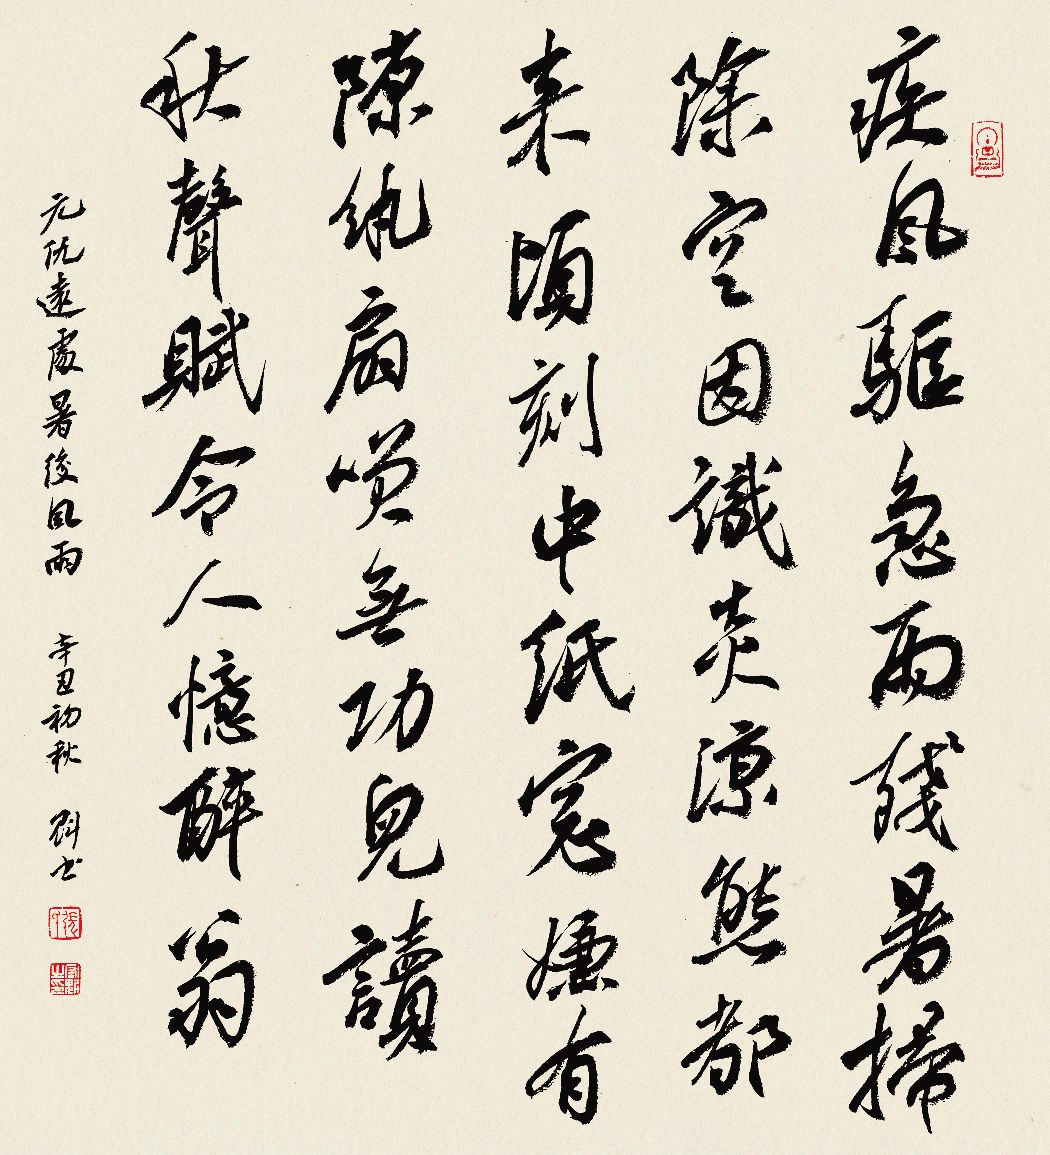 疾風驅急雨殘暑掃
除空因識炎涼態都
來頃刻中紙窗嫌有
隙紈扇笑無功兒讀
秋聲賦令人憶醉翁
元仇遠處暑後風雨 辛丑初秋 剛书